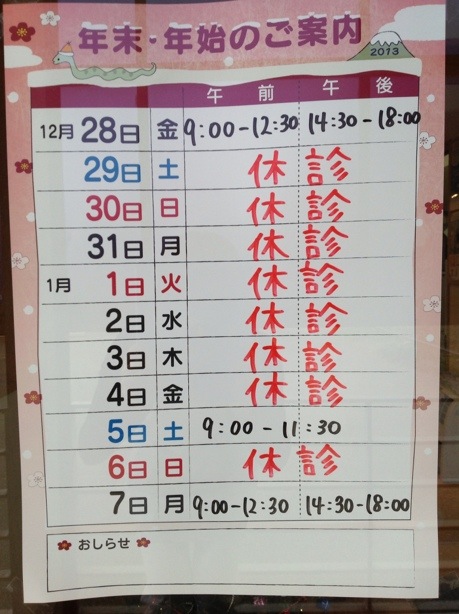 年末・年始のご案内
2013
午前 午後
12月 28日 金 9:00-12:30 14:30-18:00
29日 土 休診
30日 日 休診
31日 月 休診
1月 1日 火 休診
2日 水 休診
3日 木 休診
4日 金 休診
5日 土 9:00-11:30
6日 日 休診
7日 月 9:00-12:30 14:30-18:00
おしらせ